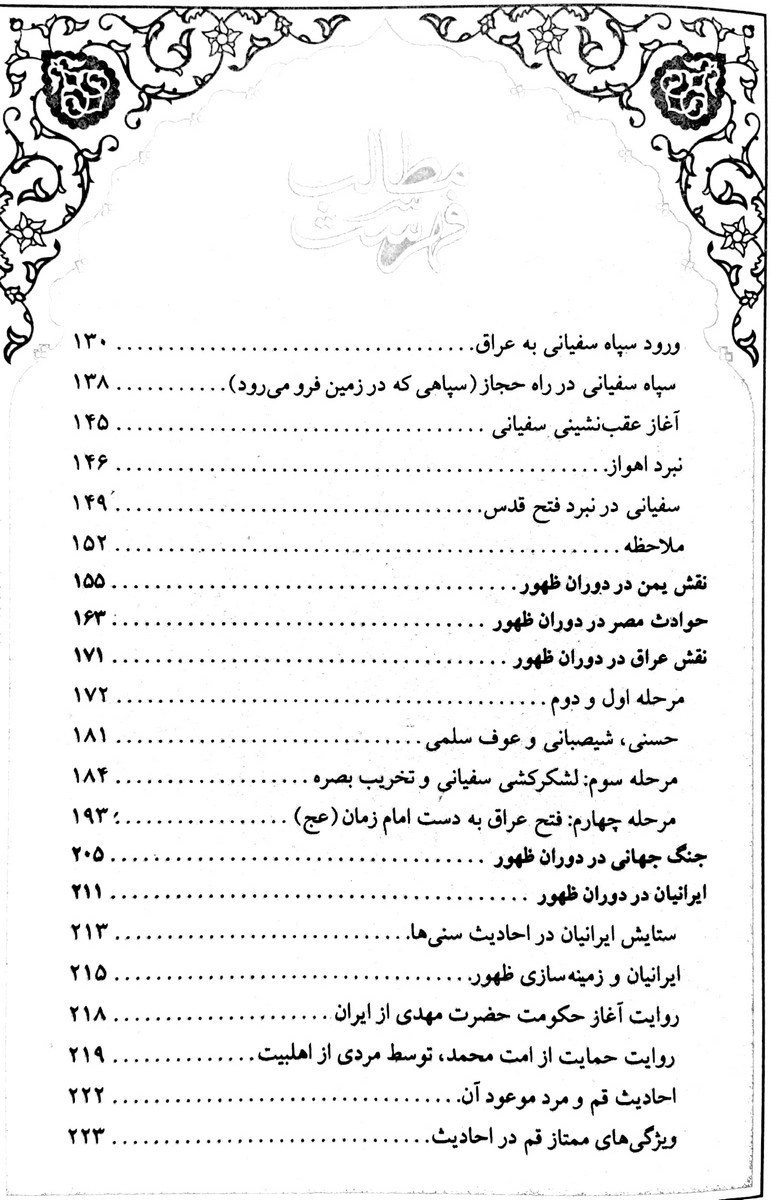 فهرست مطالب
ورود سپاه سفیانی به عراق .......... ۱۳۰
سپاه سفیانی در راه حجاز (سپاهی که در زمین فرو می‌رود) .......... ۱۳۸
آغاز عقب‌نشینی سفیانی .......... ۱۴۵
نبرد اهواز .......... ۱۴۶
سفیانی در نبرد فتح قدس .......... ۱۴۹
ملاحظه .......... ۱۵۲
نقش یمن در دوران ظهور .......... ۱۵۵
حوادث مصر در دوران ظهور .......... ۱۶۳
نقش عراق در دوران ظهور .......... ۱۷۱
مرحله اول و دوم .......... ۱۷۲
حسنی، شیصبانی و عوف سلمی .......... ۱۸۱
مرحله سوم: لشکرکشی سفیانی و تخریب بصره .......... ۱۸۴
مرحله چهارم: فتح عراق به دست امام زمان (عج) .......... ۱۹۳
جنگ جهانی در دوران ظهور .......... ۲۰۵
ایرانیان در دوران ظهور .......... ۲۱۱
ستایش ایرانیان در احادیث سنی‌ها .......... ۲۱۳
ایرانیان و زمینه‌سازی ظهور .......... ۲۱۵
روایت آغاز حکومت حضرت مهدی از ایران .......... ۲۱۸
روایت حمایت از امت محمد، توسط مردی از اهلبیت .......... ۲۱۹
احادیث قم و مرد موعود آن .......... ۲۲۲
ویژگی‌های ممتاز قم در احادیث .......... ۲۲۳